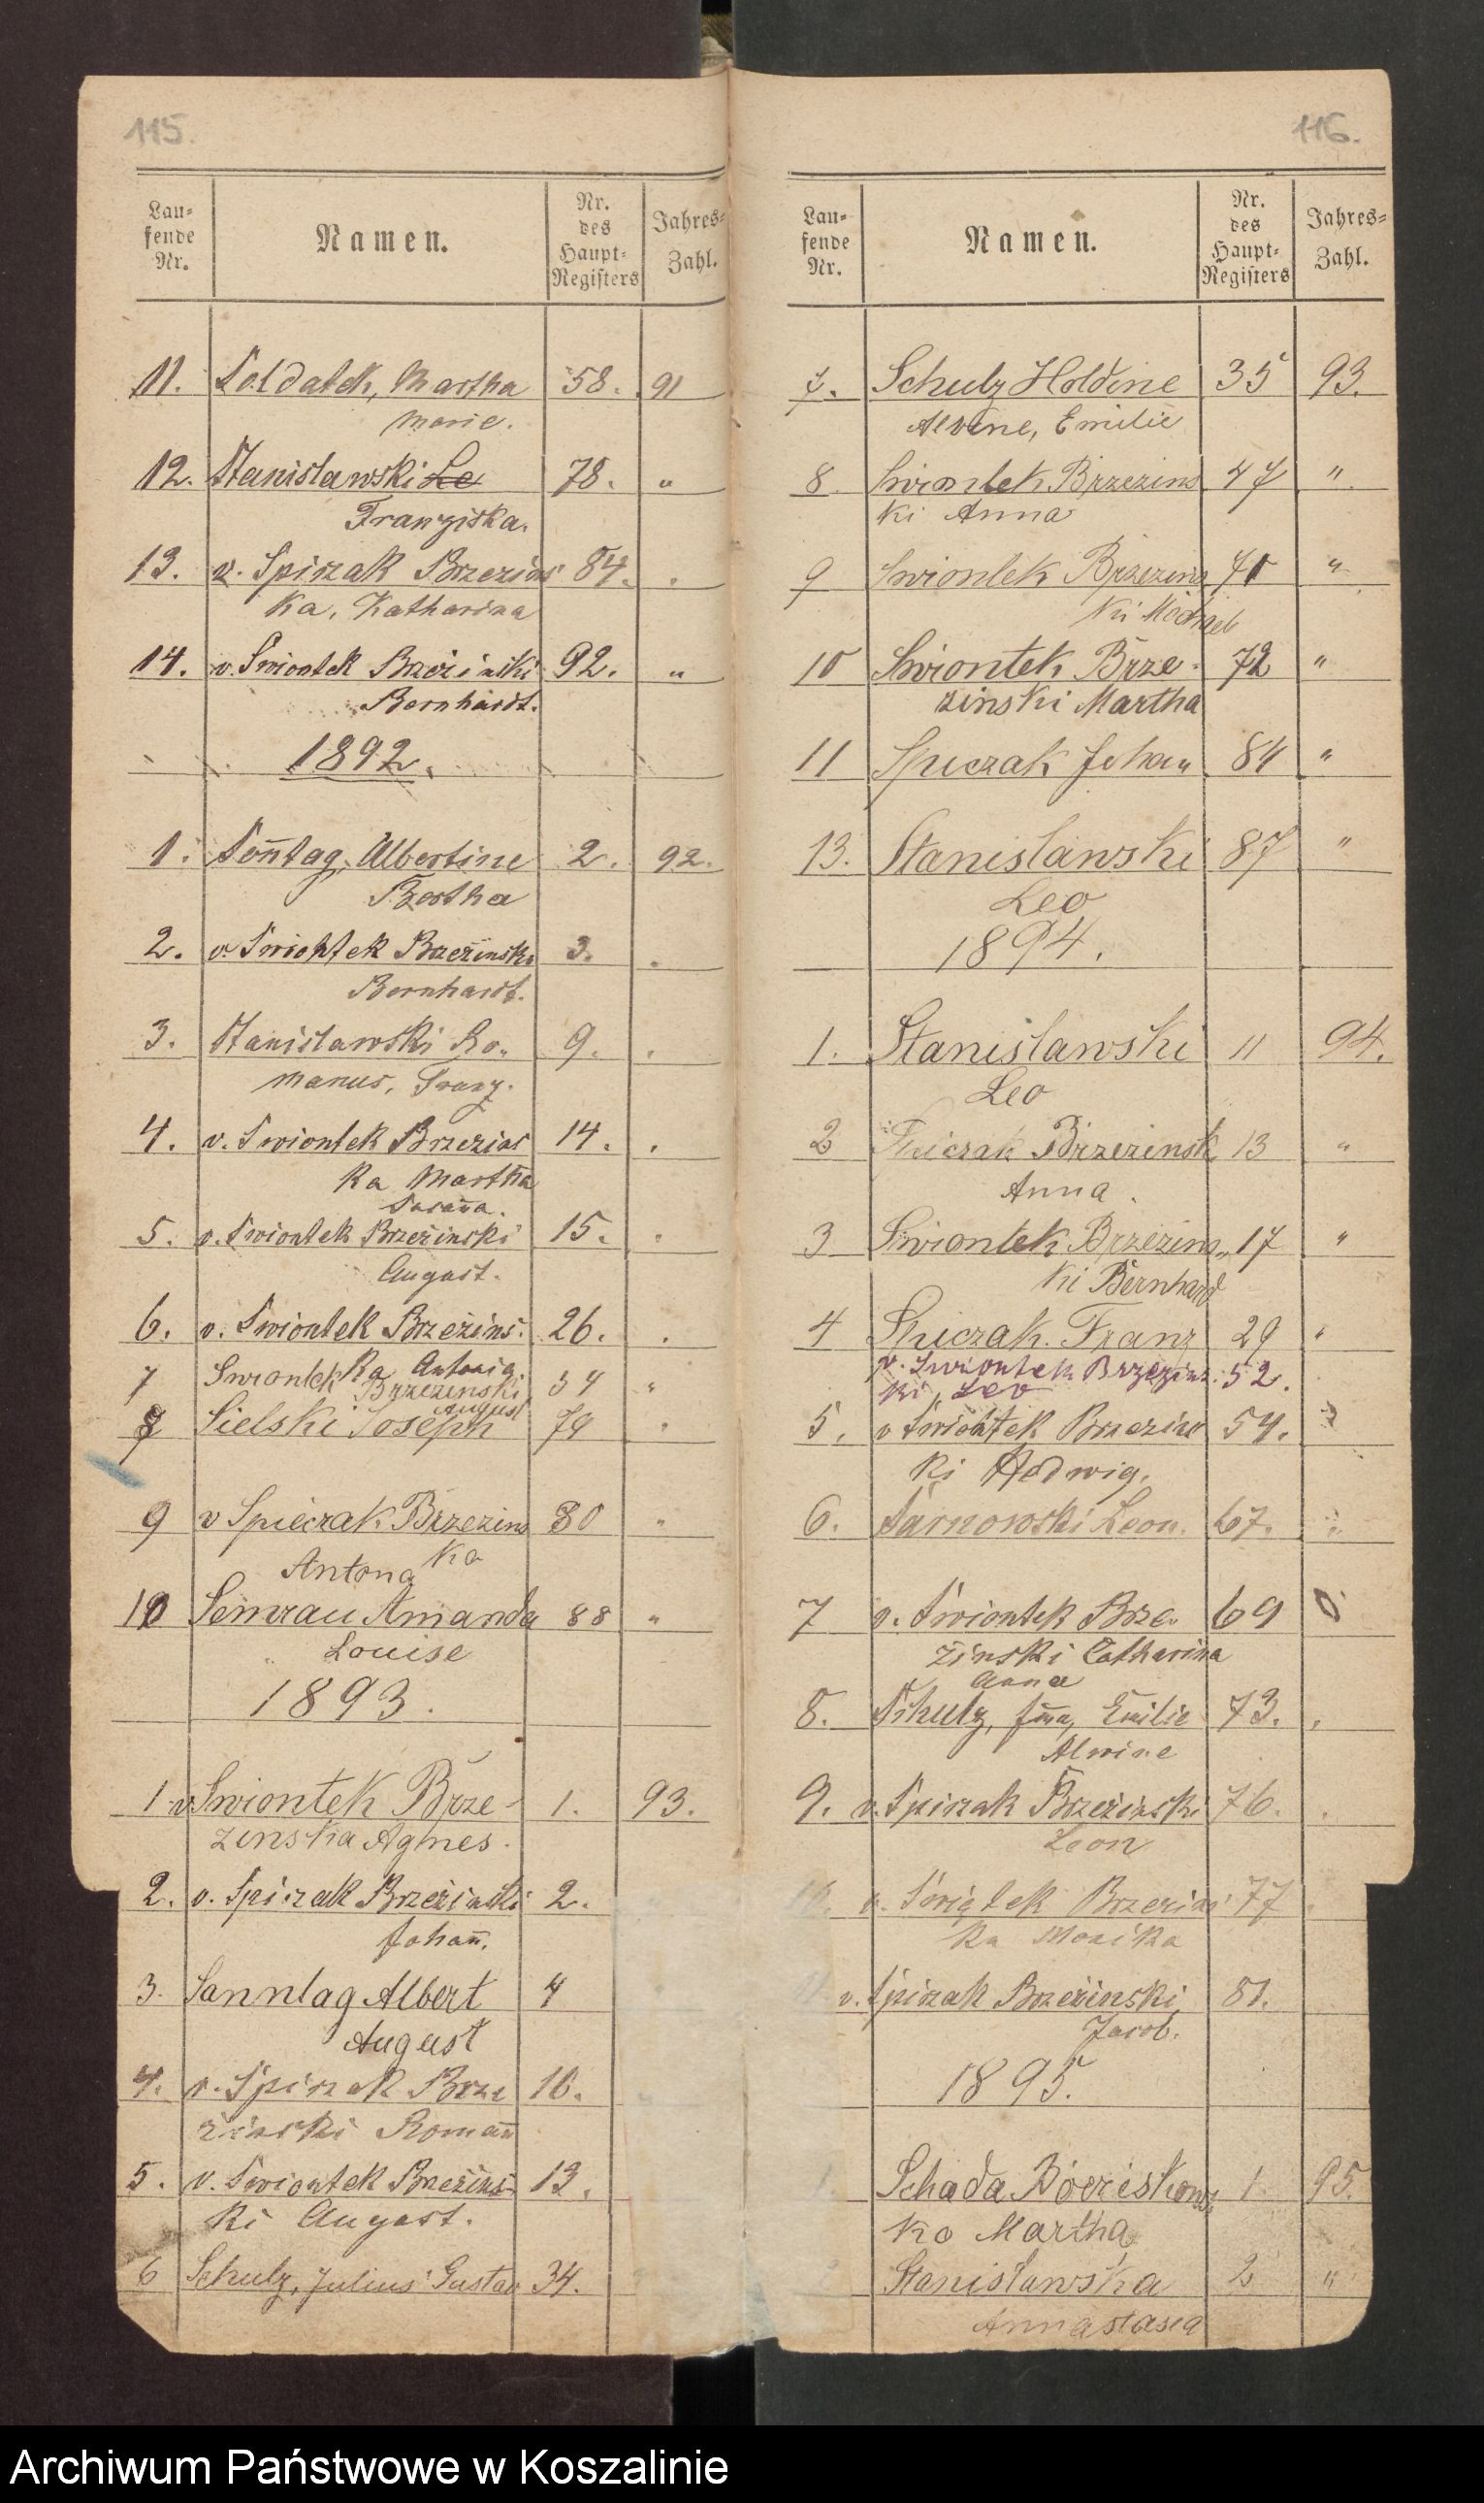 115.
Lau-
fende
Nr.
Namen.
Nr.
des
Haupt-
Registers
Jahres-
Zahl.
11. Soldatek, Martha 58. 91
Marie.
12. Stanislawski Le 78. "
Franziska.
13. v. Spiczak Brzezins 84. "
ka, Katharina
14. v. Swiontek Brzezinski 92. "
Bernhardt.
1892.
1. Sonntag, Albertine 2. 92.
Bertha
2. v. Swiontek Brzezinski 3. "
Bernhardt.
3. Stanislawski Ro- 9. "
manus, Franz.
4. v. Swiontek Brzezins 14. "
ka Martha
Susanna.
5. v. Swiontek Brzezinski 15. "
August.
6. v. Swiontek Brzezins- 26. "
ka Antonia
7 Swiontek Brzezinski 34 "
August
8 Sielski Joseph 79 "
9 v Spiczak Brzezins 80 "
ka
Antona
10 Semrau Amanda 88 "
Louise
1893.
1 v Swiontek Brze- 1. 93.
zinska Agnes.
2. v. Spiczak Brzezinski 2.
Johann.
3. Sanntag Albert 4
August
4. v. Spiczak Brze 10.
zinski Romann
5. v. Swiontek Brzezins- 13.
ki August.
6 Schulz, Julius Gustav 34.
116.
Lau-
fende
Nr.
Namen.
Nr.
des
Haupt-
Registers
Jahres-
Zahl.
7. Schulz Holdine 35 93.
Alvine, Emilie
8 Swiontek Brzezins 47 "
ki Anna
9 Swiontek Brzezins "
ki Michael
10 Swiontek Brze- 72 "
zinski Martha
11 Spiczak Johan 84 "
13. Stanislawski 87 "
Leo
1894.
1. Stanislawski 11 94.
Leo
2 Spiczak Brzezinsk 13 "
Anna.
3 Swiontek Brzezins 17 "
ki Bernhard
4 Spiczak Franz 29 "
v. Swiontek Brzezins- 52.
ki, Leo
5. v Swiontek Brzezins 54. "
ki Hedwig.
6. Sarnowski Leon. 67. "
7 v. Swiontek Brze- 69
zinski Catharina
Anna
8. Schulz, Emilie 73. "
Alwine
9. v. Spiczak Brzezinski 76. "
Leon
v. Swiqtek Brzezins 77
ka Monika
v. Spiczak Brzezinski, 81.
Jacob.
1895.
1. Schada 1 95.
ko Martha
Stanislawska 2 "
Annastasia
Archiwum Państwowe w Koszalinie